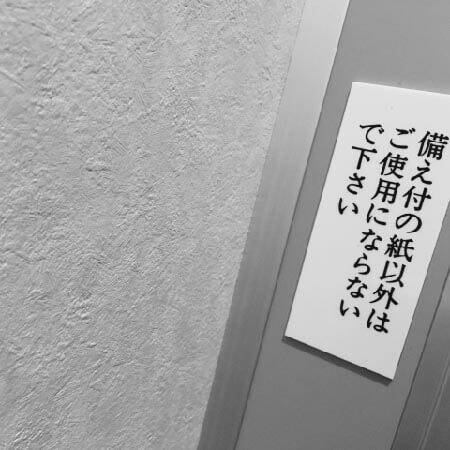 備え付の紙以外は
ご使用にならない
で下さい